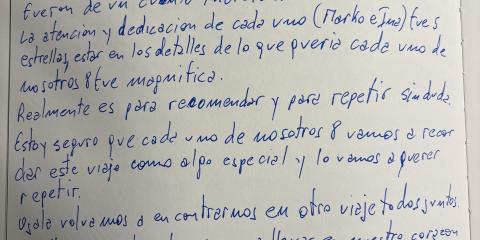 fueron de un
La atencion y dedicacion de cada uno (Marko e Ina) fue 5
estrellas, estar en los detalles de lo que queria cada uno de
nosotros 8 fue magnifica.
Realmente es para recomendar y para repetir sin duda.
Estoy seguro que cada uno de nosotros 8 vamos a recor
dar este viaje como algo especial y lo vamos a querer
repetir.
Ojala volvamos a encontrarnos en otro viaje todos juntos.
nuestro corazon